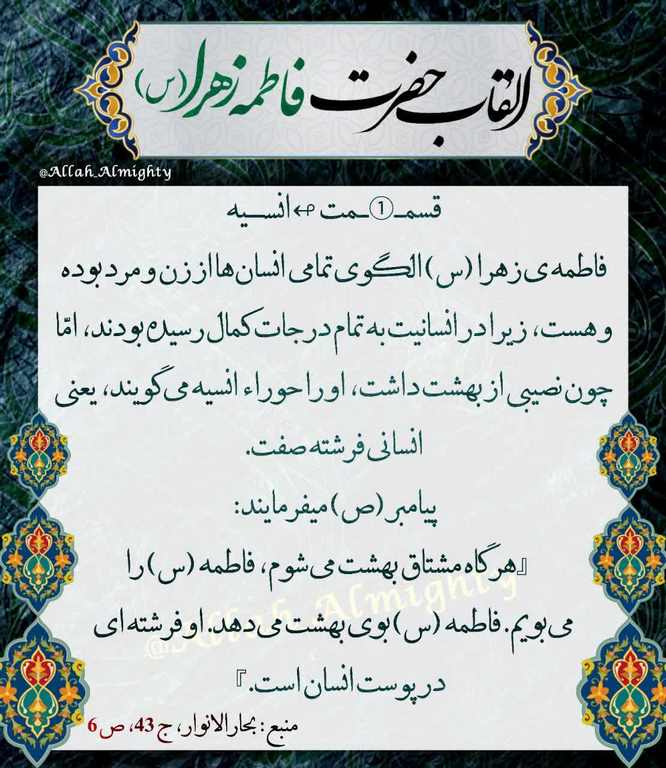 القاب حضرت فاطمه زهرا (س)
@Allah_Almighty
قسمـ①ـمت ↩ انسـیه
فاطمه‌ی زهرا (س) الگوی تمامی انسان‌ها از زن و مرد بوده
و هست، زیرا در انسانیت به تمام درجات کمال رسیده بودند، امّا
چون نصیبی از بهشت داشت، او را حوراء انسیه می‌گویند، یعنی
انسانی فرشته صفت.
پیامبر (ص) میفرمایند:
『هرگاه مشتاق بهشت می‌شوم، فاطمه (س) را
می‌بویم. فاطمه (س) بوی بهشت می‌دهد. او فرشته ای
در پوست انسان است.』
@Allah_Almighty
منبع : بحارالانوار، ج 43، ص 6